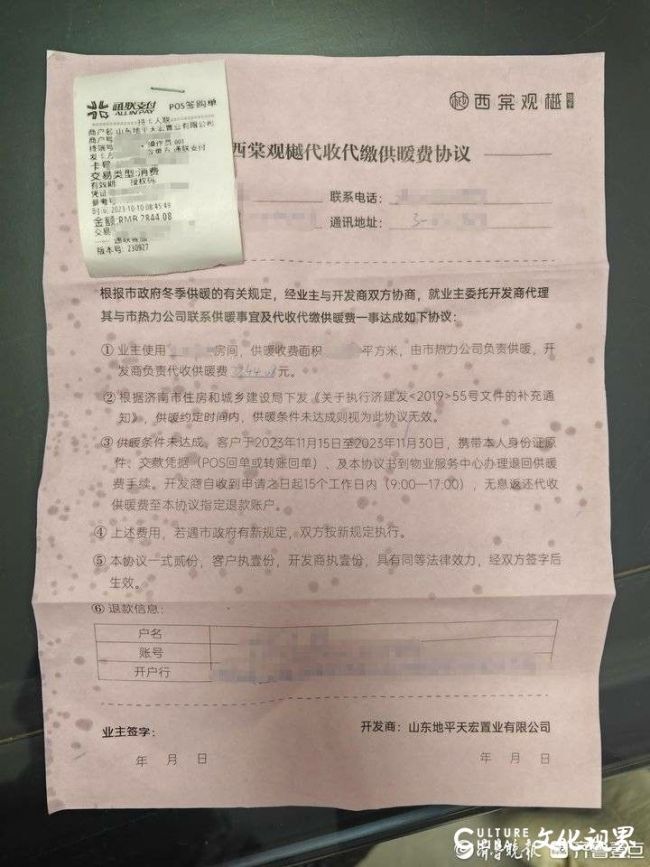 西棠观樾
通联支付
ALLINPAY
POS签购单
持卡人联
商户名:山东地平天宏置业有限公司
商户号
终端号 操作员 001
发卡方 收单方 通联支付
卡号
交易类型:消费
有效期 授权码
凭证
参考号
2023-10-10 08:45:49
金额:RMB 2844.08
交易
版本号: 230927
西棠观樾代收代缴供暖费协议
联系电话:
通讯地址: 3-
根报市政府冬季供暖的有关规定,经业主与开发商双方协商,就业主委托开发商代理
其与市热力公司联系供暖事宜及代收代缴供暖费一事达成如下协议:
① 业主使用 房间,供暖收费面积 平方米,由市热力公司负责供暖,开
发商负责代收供暖费 元。
② 根据济南市住房和城乡建设局下发《关于执行济建发<2019>55号文件的补充通
知》,供暖约定时间内,供暖条件未达成则视为此协议无效。
③ 供暖条件未达成,客户于2023年11月15日至2023年11月30日,携带本人身份证原
件、交款凭据(POS回单或转账回单)、及本协议书到物业服务中心办理退回供暖
费手续。开发商自收到申请之日起15个工作日内(9:00—17:00),无息返还代收
供暖费至本协议指定退款账户。
④ 上述费用,若遇市政府有新规定,双方按新规定执行。
⑤ 本协议一式贰份,客户执壹份,开发商执壹份,具有同等法律效力,经双方签字后
生效。
⑥ 退款信息:
户名
账号
开户行
业主签字:
开发商:山东地平天宏置业有限公司
年 月 日
年 月 日
CULTURE 文化视界
齐鲁晚报 齐鲁壹点